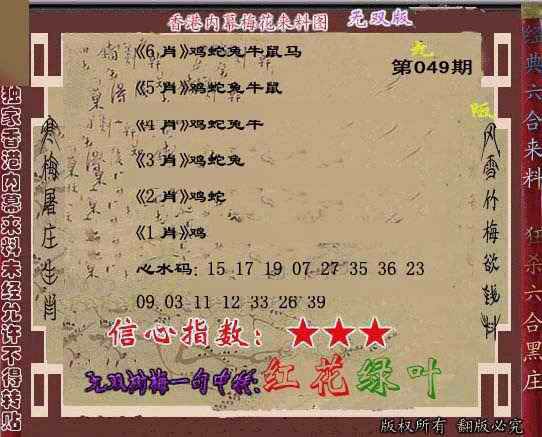 香港内幕梅花来料图 无双版
第049期
《6 肖》鸡蛇兔牛鼠马
《5 肖》鸡蛇兔牛鼠
《4 肖》鸡蛇兔牛
《3 肖》鸡蛇兔
《2 肖》鸡蛇
《1 肖》鸡
心水码: 15 17 19 07 27 35 36 23
09 03 11 12 33 26 39
信心指数: ★★★
无双浏梅一句中特:红花绿叶
独家香港内幕来料未经允许不得转贴
寒梅屠庄生肖
风雪竹梅欲钱料
经典六合来料
狂杀六合黑庄
版权所有 翻版必究